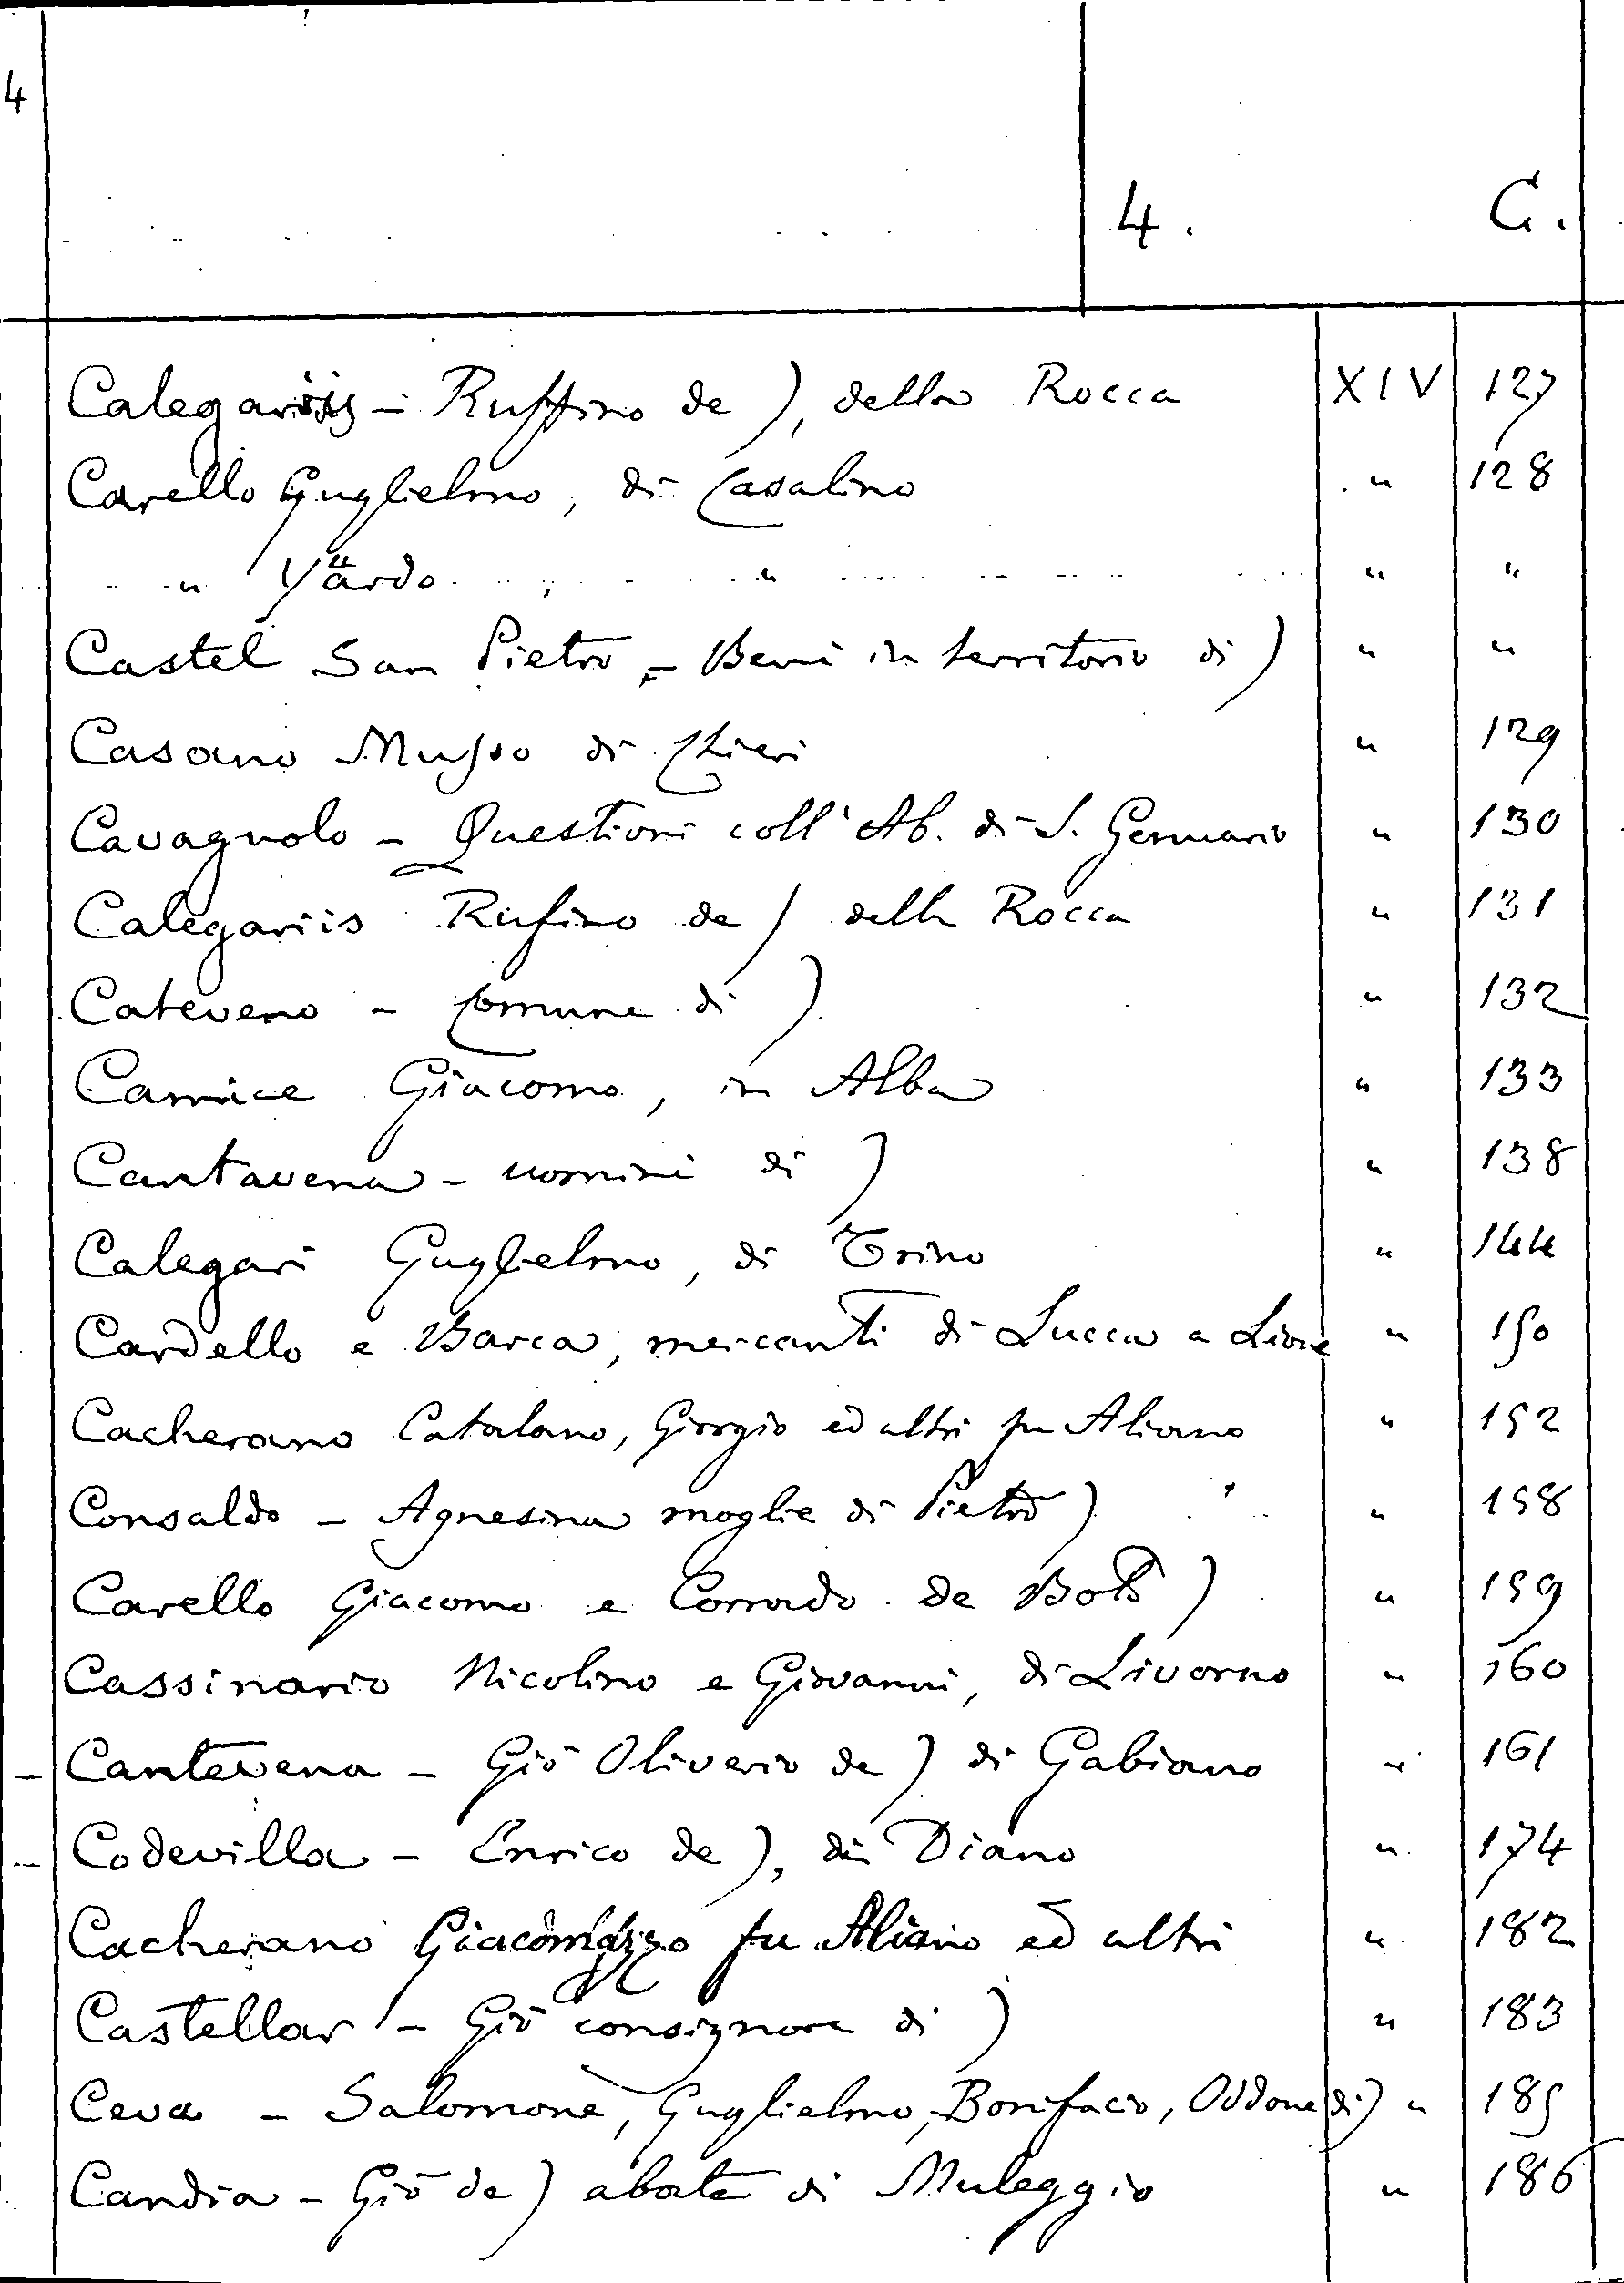 4
4. C.
Calegariis - Ruffino de ), della Rocca XIV 127
Carello Guglielmo, di Casalino " 128
" Yvardo , " " "
Castel San Pietro, - Beni in territorio di) " "
Casano Musso di Chieri " 129
Cavagnolo - Questioni coll' Ab. di S. Gennario " 130
Calegariis Rufino de ) della Rocca " 131
Cateveno - Comune di ) " 132
Camice Giacomo, in Alba " 133
Cantavena - uomini di ) " 138
Calegari Guglielmo, di Trino " 144
Cardello e Barca, mercanti di Lucca a Lione " 150
Cacherano Catalano, Giorgio ed altri fu Aliano " 152
Consaldo - Agnesina moglie di Pietro ) " 158
Carello Giacomo e Corrado de ) " 159
Cassinario Nicolino e Giovanni, di Livorno " 160
- Cantevena - Giò Oliverio de ) di Gabiano " 161
- Codevilla - Enrico de ), di Diano " 174
Cacherano Giacomazzo fu Aliano ed altri " 182
Castellar - Giò consignore di ) " 183
Ceva - Salomone, Guglielmo, Bonifacio, Oddone di) " 185
Candia - Giò de ) abate di Muleggio " 186